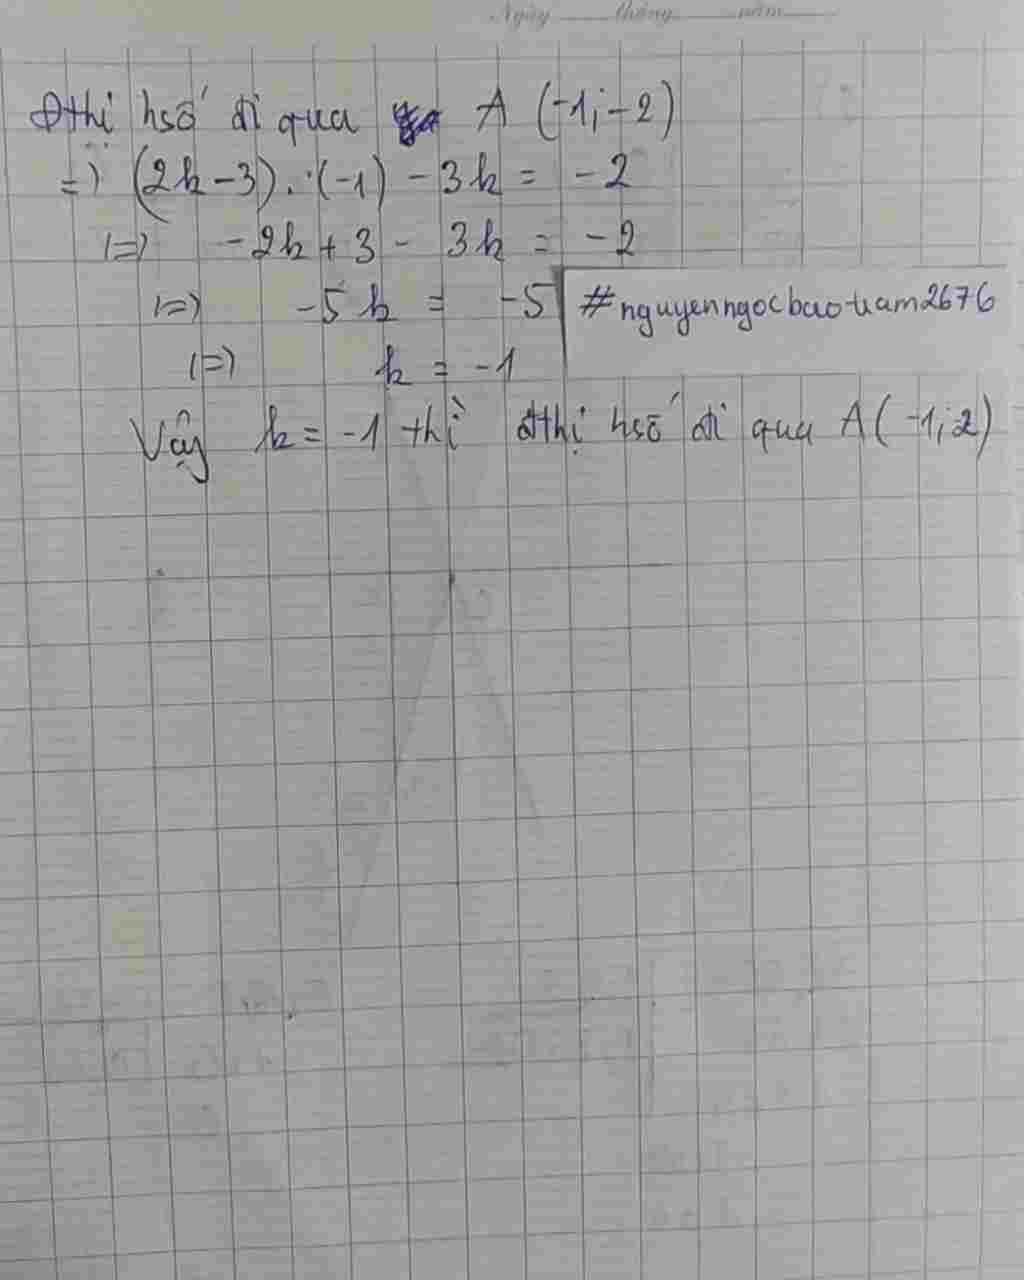 Ngày tháng năm
Đthị hsố đi qua A (-1;-2)
=) (2k-3).(-1) - 3k = -2
(=) -2k + 3 - 3k = -2
(=) -5k = -5
#nguyenngocbaotram2676
(=) k = -1
Vậy k = -1 thì đthị hsố đi qua A(-1;2)